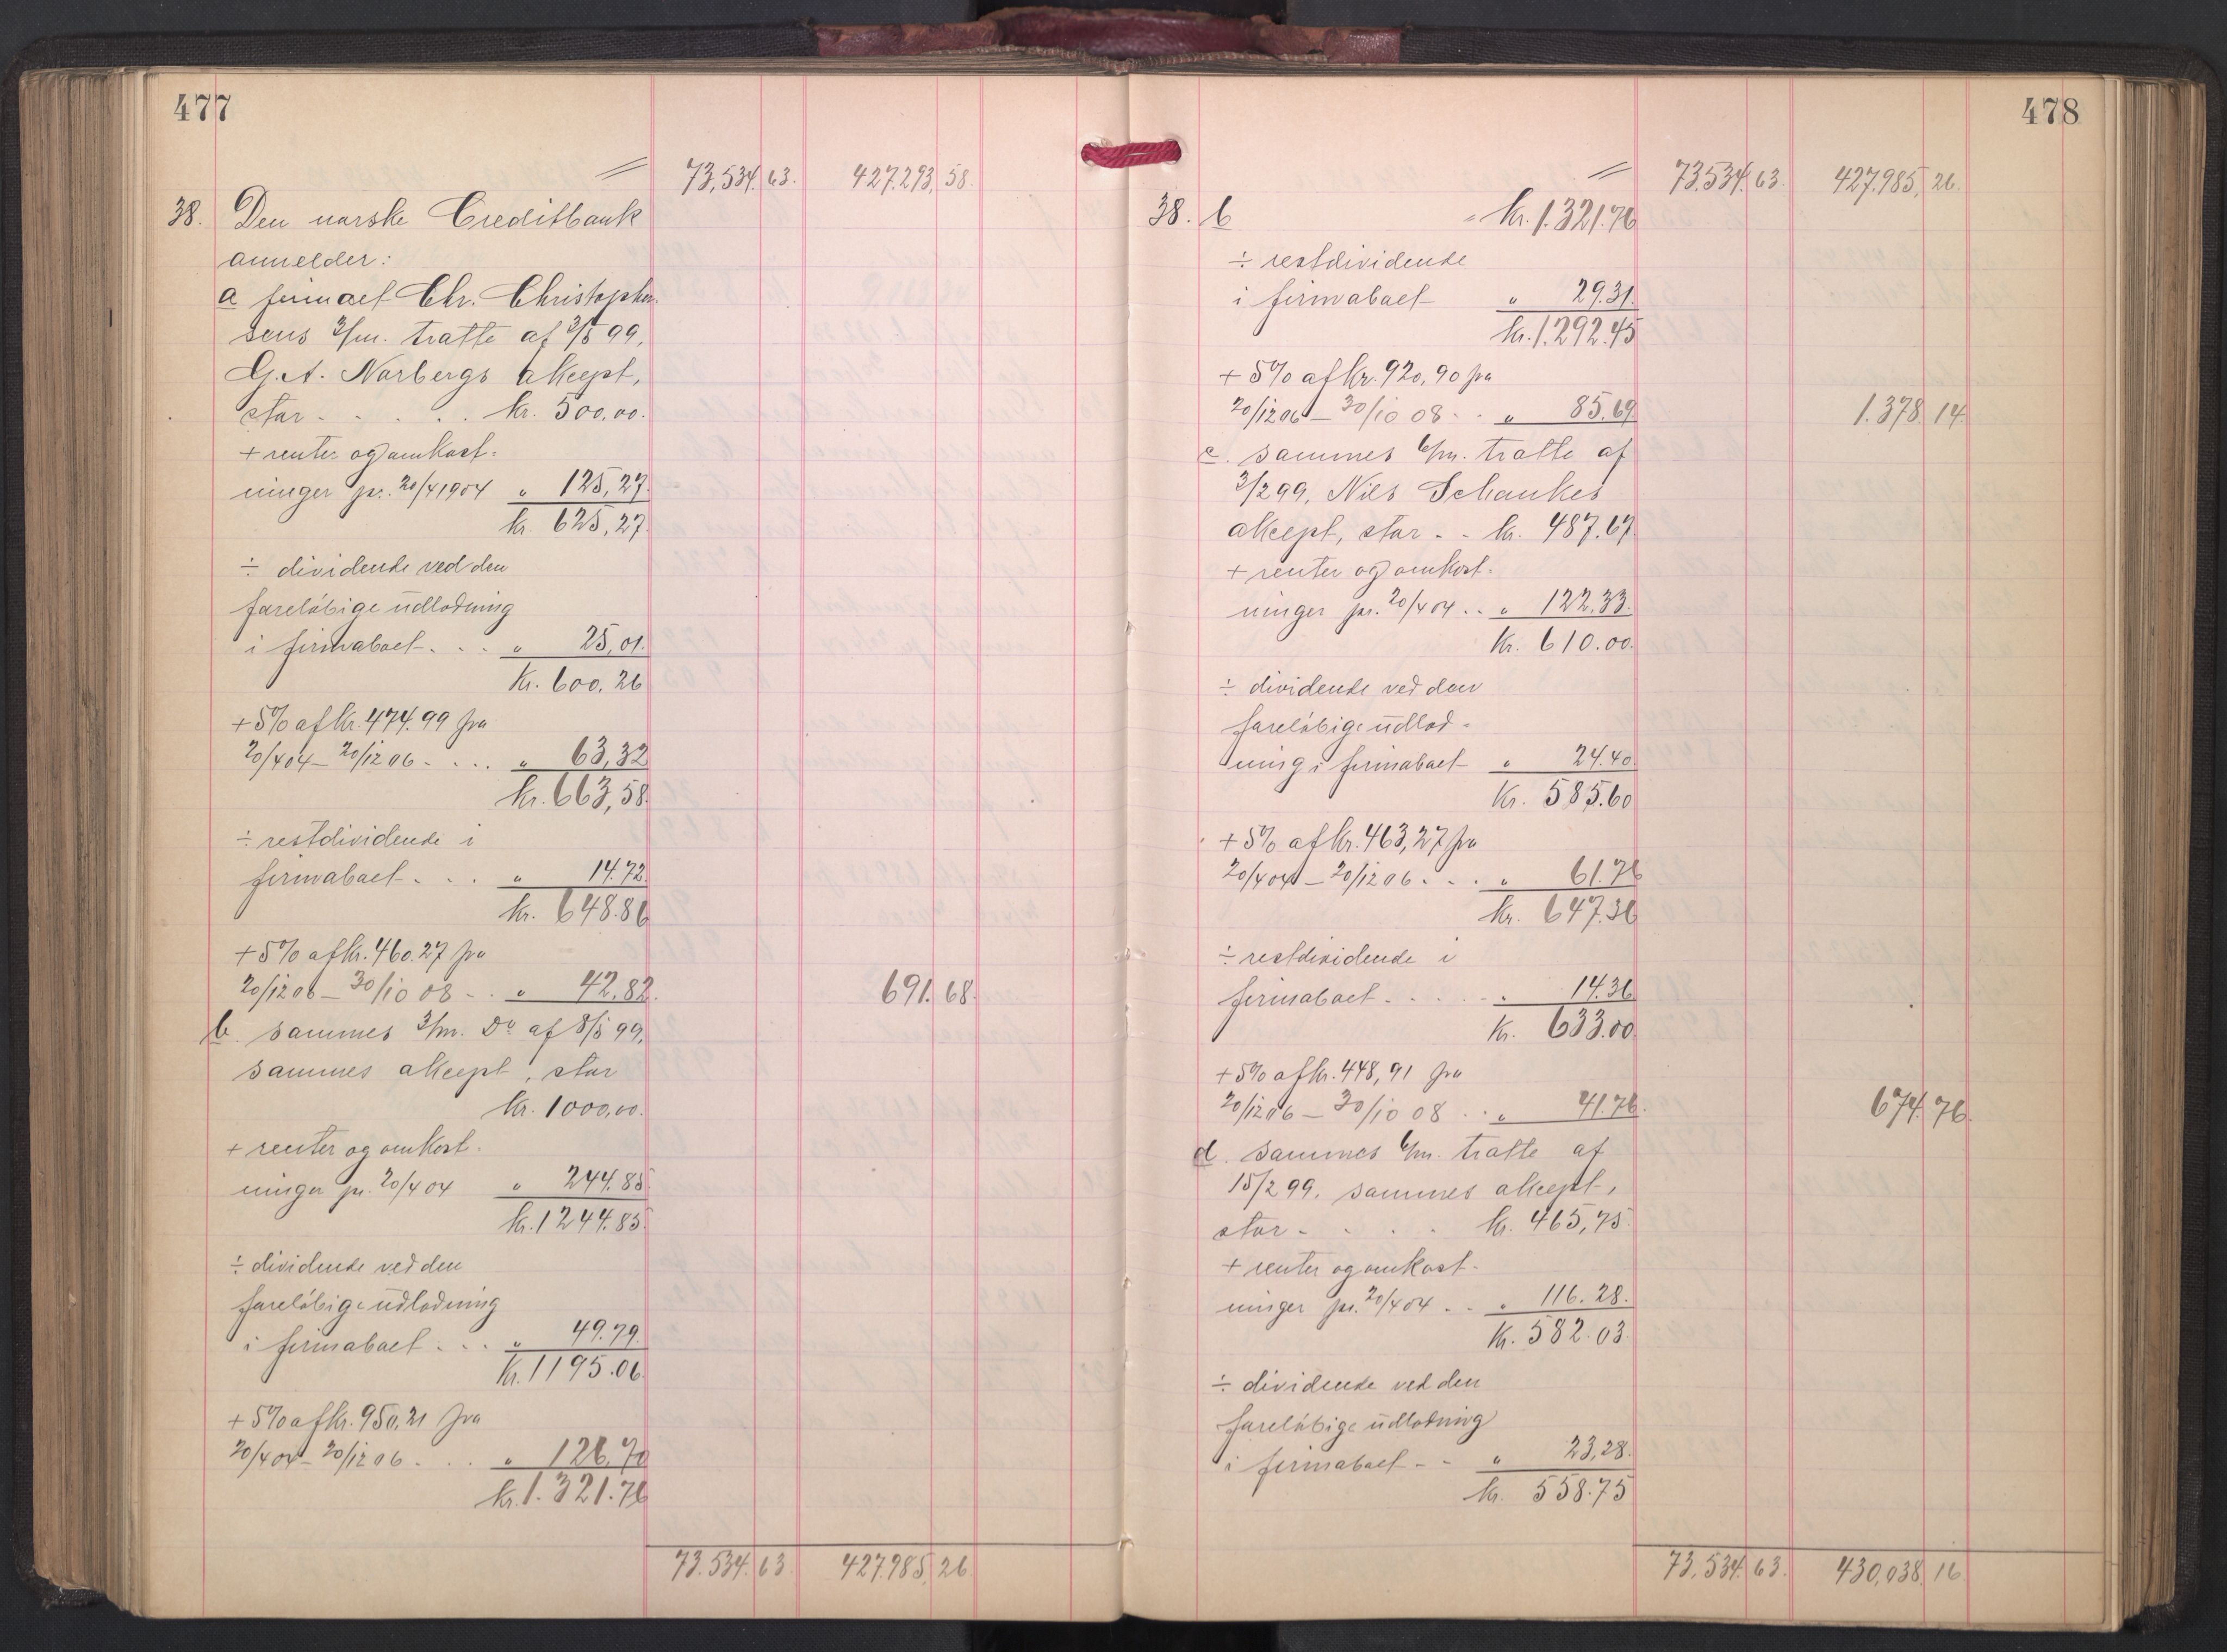 477
〃 73,534.63. 427.293,58.
38. Den norske Creditbank
anmelder:
a firmaet Chr. Christophersens
3/m. tratte af 3/5 99,
G. A. Norbergs aksept,
stor - - . . . kr. 500,00.
+ renter og omkost-
ninger pr. 20/4 1904 „ 125,27.
kr. 625,27.
÷ dividende ved den
foreløbige udlodning
i firmaboet . . - „ 25,01.
Kr. 600,26
+ 5% af kr. 474.99 fra
20/4 04 – 20/12 06 - . . . „ 63,32
kr. 663,58.
÷ restdividende i
firmaboet . . . „ 14.72.
kr. 648.86
+ 5% af kr. 460.27 fra
20/12 06 – 30/10 08 - . „ 42,82. 691.68.
b. sammes 3/m. Do af 8/5 99,
sammes aksept, stor
kr. 1000,00.
+ renter og omkost-
ninger pr. 20/4 04 „ 244.85
kr. 1244.85.
÷ dividende ved den
foreløbige udlodning
i firmaboet . . . „ 49.79.
Kr. 1195.06.
+ 5% af kr. 950,21 fra
20/4 04 – 20/12 06 . . . „ 126,70
kr. 1.321.76
73.534.63. 427.985,26
478
〃 73.534.63. 427.985,26.
38. b „ kr. 1.321.76
÷ restdividende
i firmaboet „ 29.31.
kr. 1.292.45
+ 5% af kr. 920,90 fra
20/12 06 – 30/10 08 - . „ 85.69. 1.378.14.
c. sammes 6/m. tratte af
3/2 99, Nils Schankes
aksept, stor . - kr. 487.67
+ renter og omkost-
ninger pr. 20/4 04 . . „ 122.33.
Kr. 610.00.
÷ dividende ved den
foreløbige udlod-
ning i firmaboet „ 24.40.
Kr. 585.60
+ 5% af kr. 463,27 fra
20/4 04 – 20/12 06 . . . „ 61.76
kr. 647.36
÷ restdividende i
firmaboet . . . . . „ 14.36
Kr. 633.00.
+ 5% af kr. 448,91 fra
20/12 06 – 30/10 08 . . „ 41.76. 674.76.
d. sammes 6/m. tratte af
15/2 99, sammes aksept,
stor - . . . kr. 465,75.
+ renter og omkost-
ninger pr. 20/4 04 . . „ 116.28.
Kr. 582.03.
÷ dividende ved den
foreløbige udlodning
i firmaboet - - „ 23,28.
kr. 558.75
73,534.63. 430,038.16.